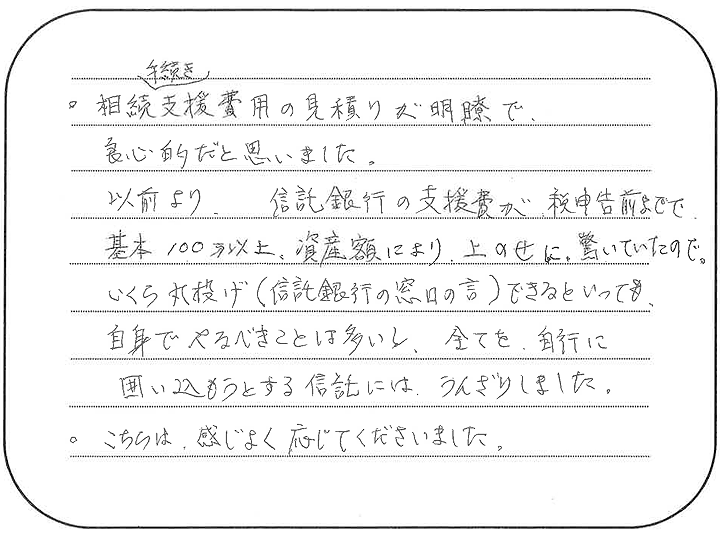 手続き
。相続支援費用の見積りが明瞭で、
良心的だと思いました。
以前より、信託銀行の支援費が、税申告前までで、
基本100万以上、資産額により、上のせに。驚いていたので。
いくら丸投げ(信託銀行の窓口の言)できるといっても、
自身でやるべきことは多いし、全てを、自行に
囲い込もうとする信託には、うんざりしました。
。こちらは、感じよく応じてくださいました。